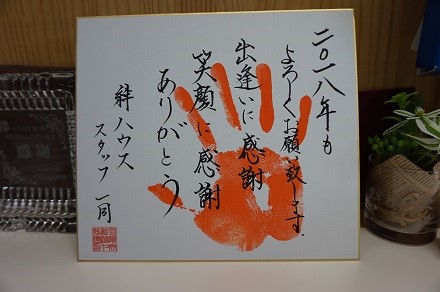 二〇一八年も
よろしくお願い致します.
出逢いに感謝
笑顔に感謝
ありがとう
絆ハウス
スタッフ一同